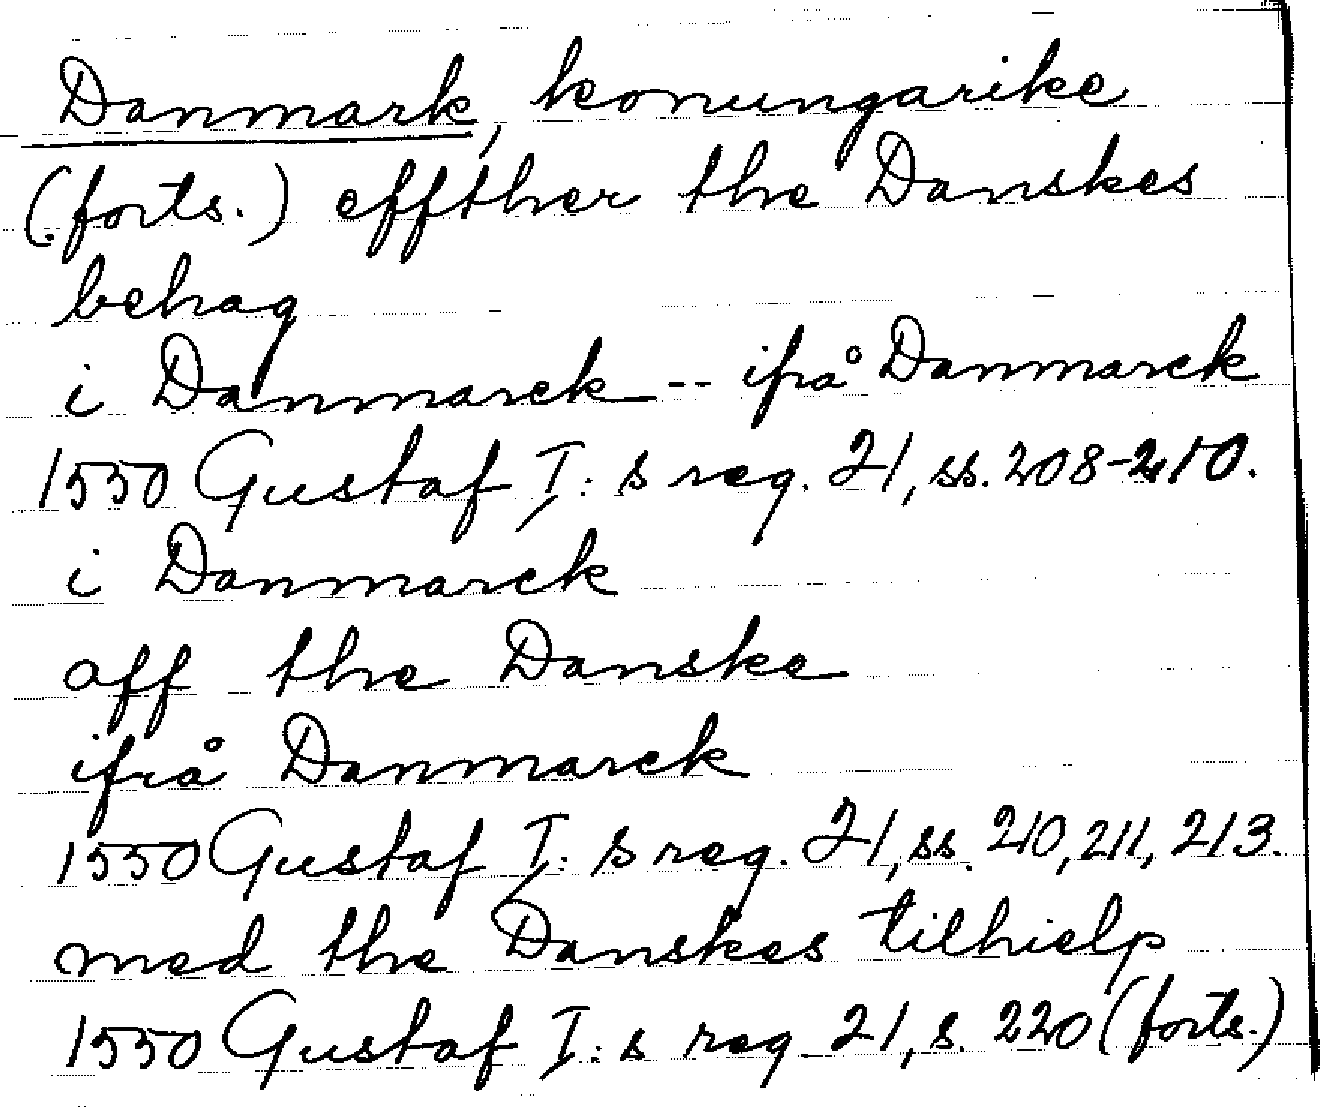 Danmark, konungarike
(forts.) effther the Danskes
behag
i Danmarck -- ifrå Danmarck
1550 Gustaf I: s reg. 21, ss. 208-210.
i Danmarck
aff the Danske
ifrå Danmarck
1550 Gustaf I: s reg. 21, ss. 210, 211, 213.
med the Danskes tilhielp
1550 Gustaf I: s reg. 21, s. 220 (forts.)